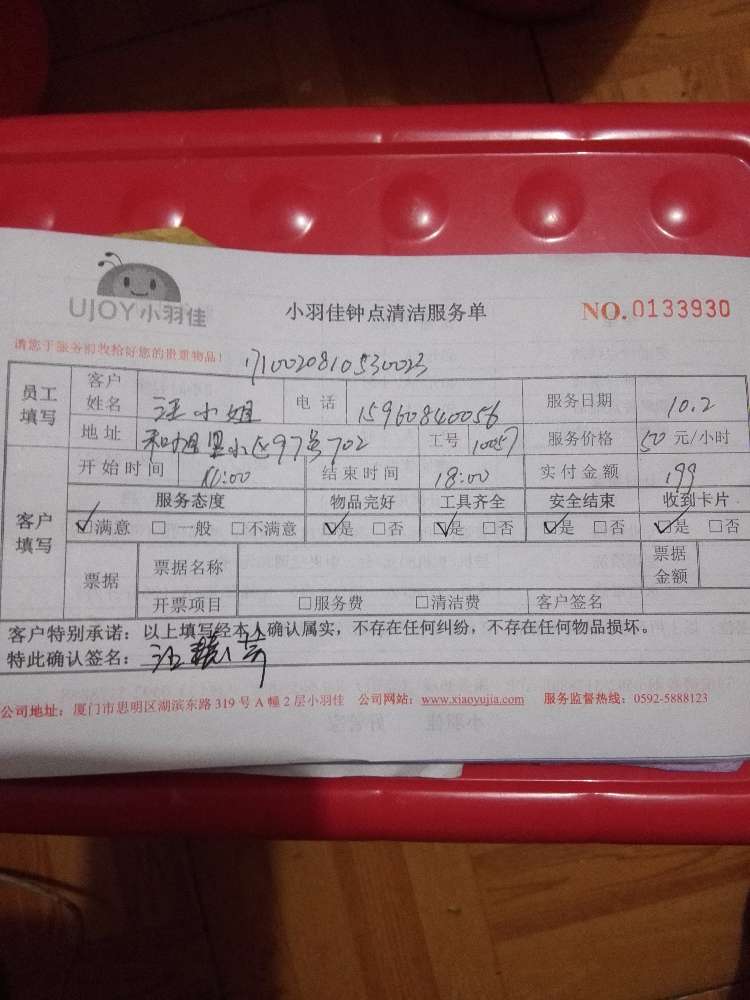 UJOY小羽佳
小羽佳钟点清洁服务单
NO.0133930
请您于服务前收拾好您的贵重物品！
1710020810530023
员工填写 客户姓名 汪小姐 电话 15960840056 服务日期 10.2
地址 和旭里小区97号702 工号 10057 服务价格 50元/小时
开始时间 :00 结束时间 18:00 实付金额 199
客户填写 服务态度 物品完好 工具齐全 安全结束 收到卡片
☑满意 □一般 □不满意 ☑是 □否 ☑是 □否 ☑是 □否 ☑是 □否
票据 票据名称 票据金额
开票项目 □服务费 □清洁费 客户签名
客户特别承诺：以上填写经本人确认属实，不存在任何纠纷，不存在任何物品损坏。
特此确认签名：汪
公司地址：厦门市思明区湖滨东路319号A幢2层小羽佳 公司网站：www.xiaoyujia.com 服务监督热线：0592-5888123